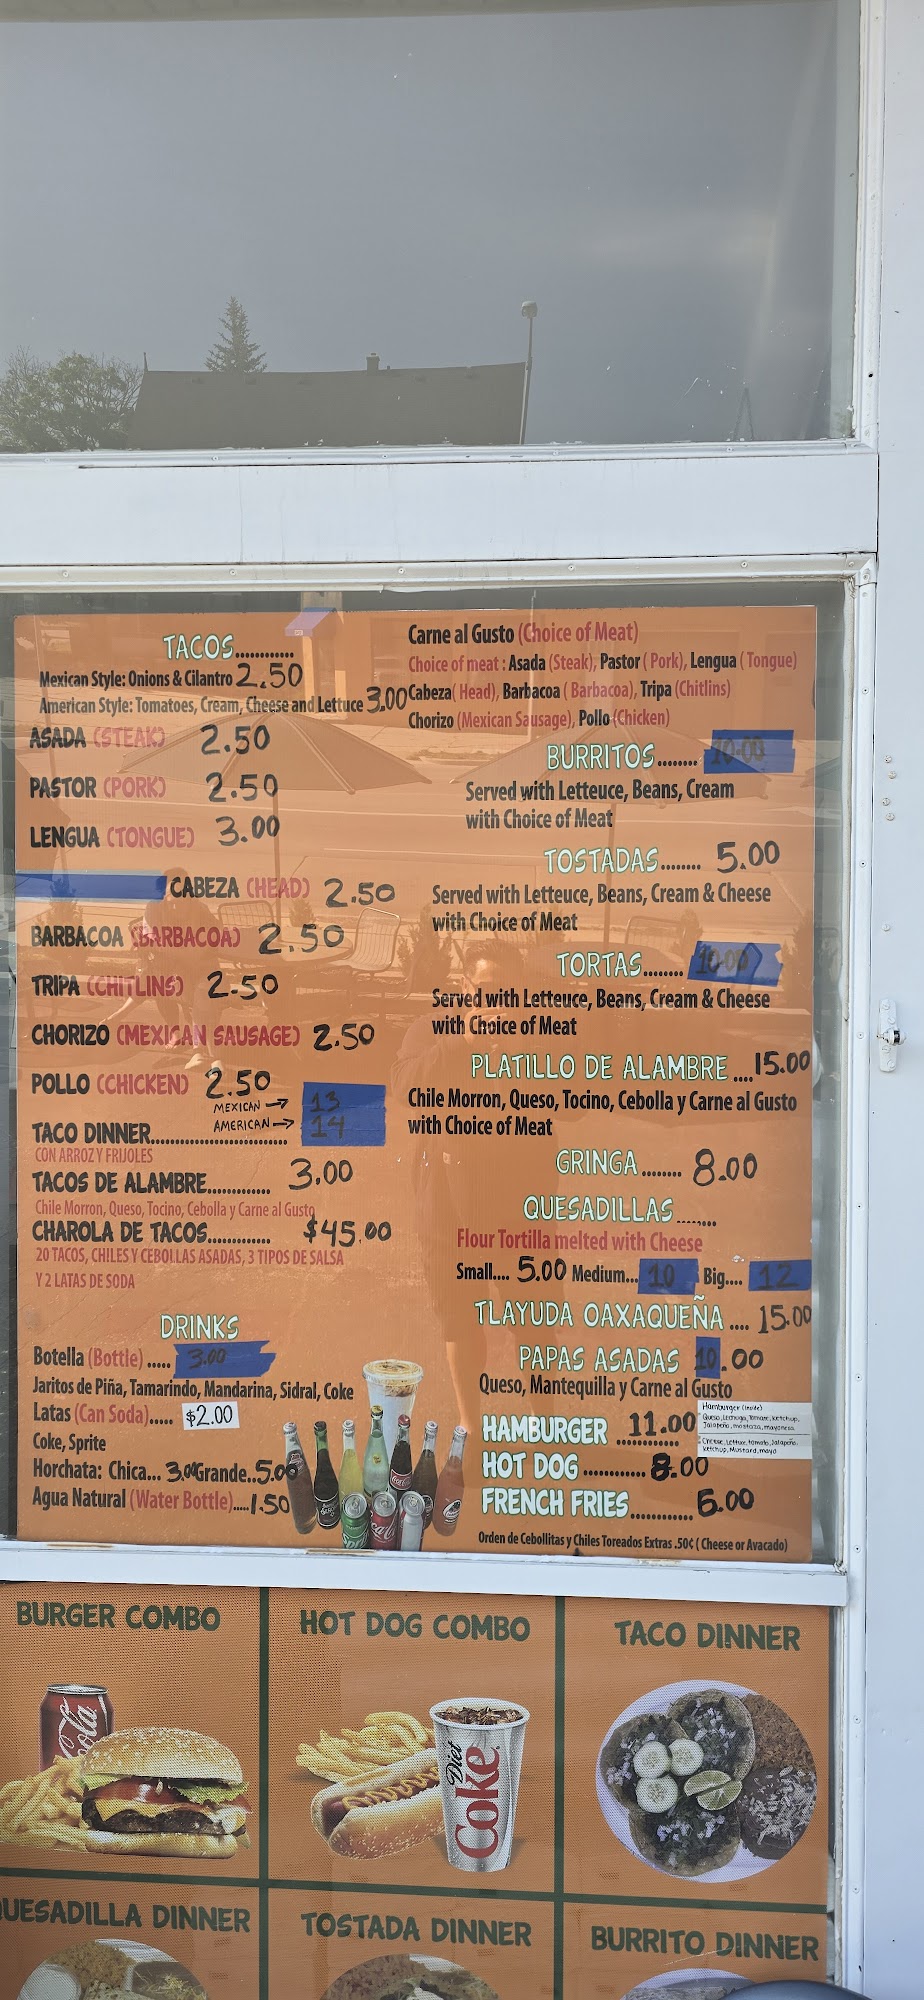 TACOS............
Mexican Style: Onions & Cilantro 2.50
American Style: Tomatoes, Cream, Cheese and Lettuce 3.00
ASADA (STEAK) 2.50
PASTOR (PORK) 2.50
LENGUA (TONGUE) 3.00
CABEZA (HEAD) 2.50
BARBACOA (BARBACOA) 2.50
TRIPA (CHITLINS) 2.50
CHORIZO (MEXICAN SAUSAGE) 2.50
POLLO (CHICKEN) 2.50
MEXICAN → 13
AMERICAN → 14
TACO DINNER............................
CON ARROZ Y FRIJOLES
TACOS DE ALAMBRE............. 3.00
Chile Morron, Queso, Tocino, Cebolla y Carne al Gusto
CHAROLA DE TACOS............. $45.00
20 TACOS, CHILES Y CEBOLLAS ASADAS, 3 TIPOS DE SALSA
Y 2 LATAS DE SODA
DRINKS
Botella (Bottle) ..... 3.00
Jaritos de Piña, Tamarindo, Mandarina, Sidral, Coke
Latas (Can Soda)..... $2.00
Coke, Sprite
Horchata: Chica... 3.00 Grande..5.00
Agua Natural (Water Bottle).....1.50
Carne al Gusto (Choice of Meat)
Choice of meat : Asada (Steak), Pastor ( Pork), Lengua ( Tongue)
Cabeza( Head), Barbacoa ( Barbacoa), Tripa (Chitlins)
Chorizo (Mexican Sausage), Pollo (Chicken)
BURRITOS........ 10.00
Served with Letteuce, Beans, Cream
with Choice of Meat
TOSTADAS........ 5.00
Served with Letteuce, Beans, Cream & Cheese
with Choice of Meat
TORTAS........ 10.00
Served with Letteuce, Beans, Cream & Cheese
with Choice of Meat
PLATILLO DE ALAMBRE ....15.00
Chile Morron, Queso, Tocino, Cebolla y Carne al Gusto
with Choice of Meat
GRINGA........ 8.00
QUESADILLAS........
Flour Tortilla melted with Cheese
Small.... 5.00 Medium... 10 Big.... 12
TLAYUDA OAXAQUEÑA .... 15.00
PAPAS ASADAS 10.00
Queso, Mantequilla y Carne al Gusto
HAMBURGER ............ 11.00
Hamburger (inside)
Queso, Lechuga, Tomate, ketchup,
Jalapeño, mostaza, mayonesa
Cheese, Lettuce, tomato, Jalapeño,
ketchup, Mustard, mayo
HOT DOG ............ 8.00
FRENCH FRIES............ 6.00
Orden de Cebollitas y Chiles Toreados Extras .50¢ ( Cheese or Avacado)
BURGER COMBO
HOT DOG COMBO
TACO DINNER
Diet
Coke
UESADILLA DINNER
TOSTADA DINNER
BURRITO DINNER